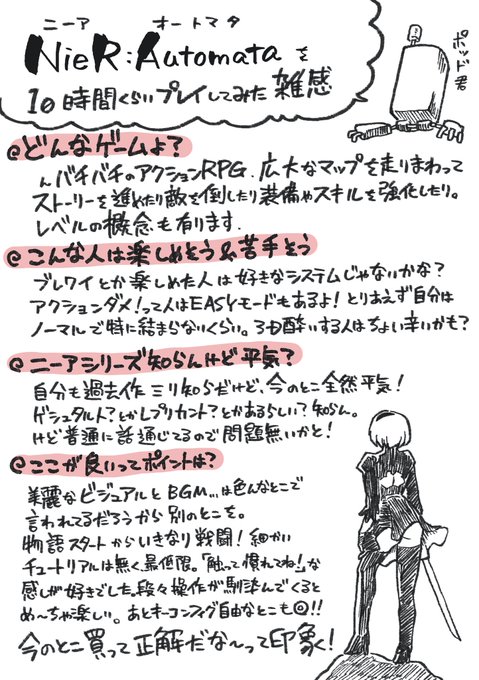 ニーア オートマタ
NieR:Automataを
10時間くらいプレイしてみた雑感
ポッド君
@どんなゲームよ?
バチバチのアクションRPG.広大なマップを走りまわって
ストーリーを進めたり敵を倒したり装備やスキルを強化したり。
レベルの概念も有ります.
@こんな人は楽しめそう&苦手そう
ブレワイとか楽しめた人は好きなシステムじゃないかな?
アクションダメ!って人はEASYモードもあるよ!とりあえず自分は
ノーマルで特に詰まらないくらい。3D酔いする人はちょい辛いかも?
@ニーアシリーズ知らんけど平気?
自分も過去作ミリ知らだけど、今のとこ全然平気!
ゲシュタルト?とかレプリカント?とかあるらしい?知らん。
けど普通に話通じてるので問題無いかと!
@ここが良いってポイントは?
美麗なビジュアルとBGM...は色んなとこで
言われてるだろうから別のとこを。
物語スタートからいきなり戦闘!細かい
チュートリアルは無く、最低限。「触って慣れてね!」な
感じが好きでした。段々操作が馴染んでくると
め〜ちゃ楽しい。あとキーコンフィグ自由なとこも◎!!
今のとこ買って正解だな〜って印象!